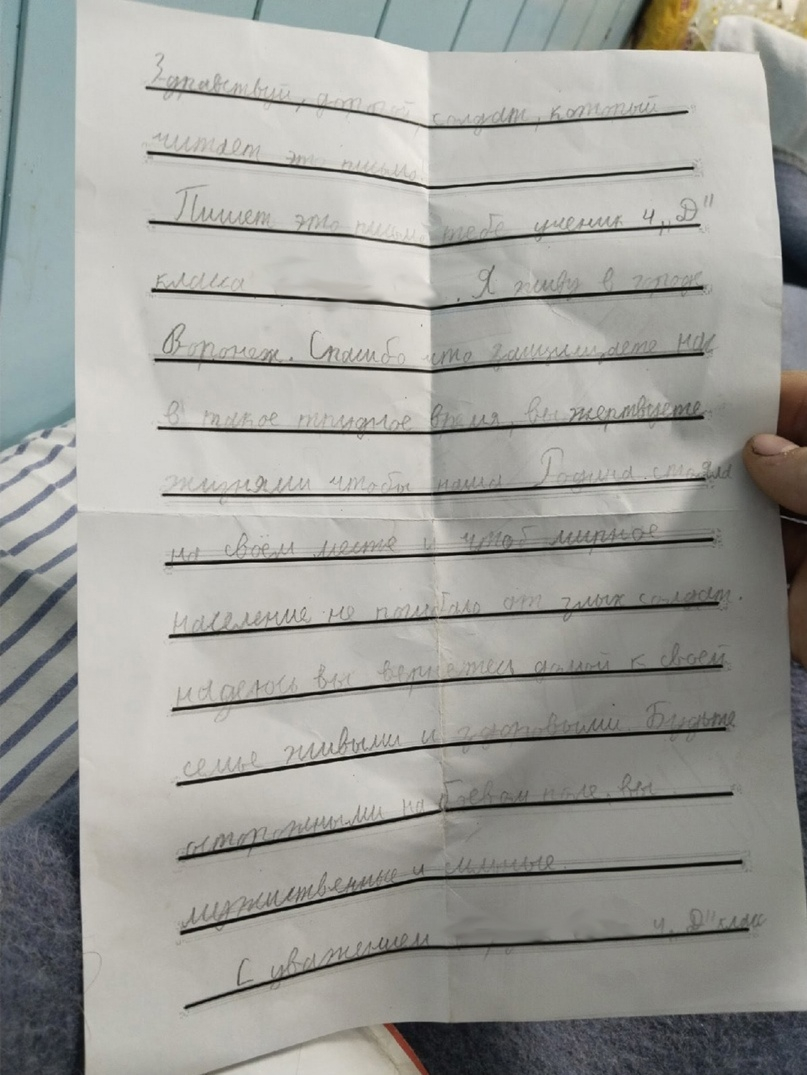 Здравствуй, дорогой, солдат, который
читает это письмо.
Пишет это письмо тебе ученик 4 „Д"
класса . Я живу в городе
Воронеж. Спасибо что защищаете нас
в такое трудное время, вы жертвуете
жизнями чтобы наша Родина стояла
на своём месте и чтоб мирное
население не погибало от злых солдат.
надеюсь вы вернётесь домой к своей
семье живыми и здоровыми. Будьте
осторожными на боевом поле. вы
мужиственные и сильные.
С уважением 4 „Д" класс